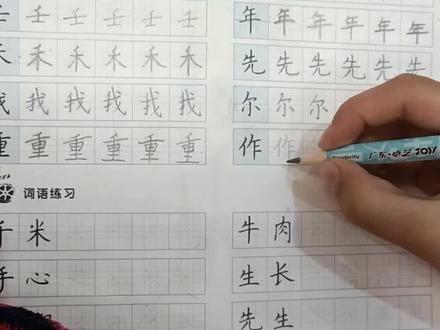 壬 壬 壬 壬 壬 壬
禾 禾 禾 禾 禾 禾
我 我 我 我 我 我
重 重 重 重 重 重
年 年 年 年 年 年
先 先 先 先 先 先
尔 尔 尔
作 作
词语练习
千 米
手 心
牛 肉
生 长
先 生
广东·卓艺 TOY